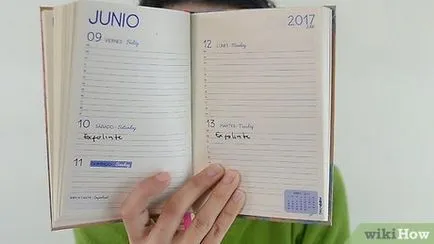 JUNIO
09 VIERNES · Friday
10 SÁBADO · Saturday
Exfoliate
11 DOMINGO · Sunday
2017
12 LUNES · Monday
13 MARTES · Tuesday
Exfoliate
wikiHow